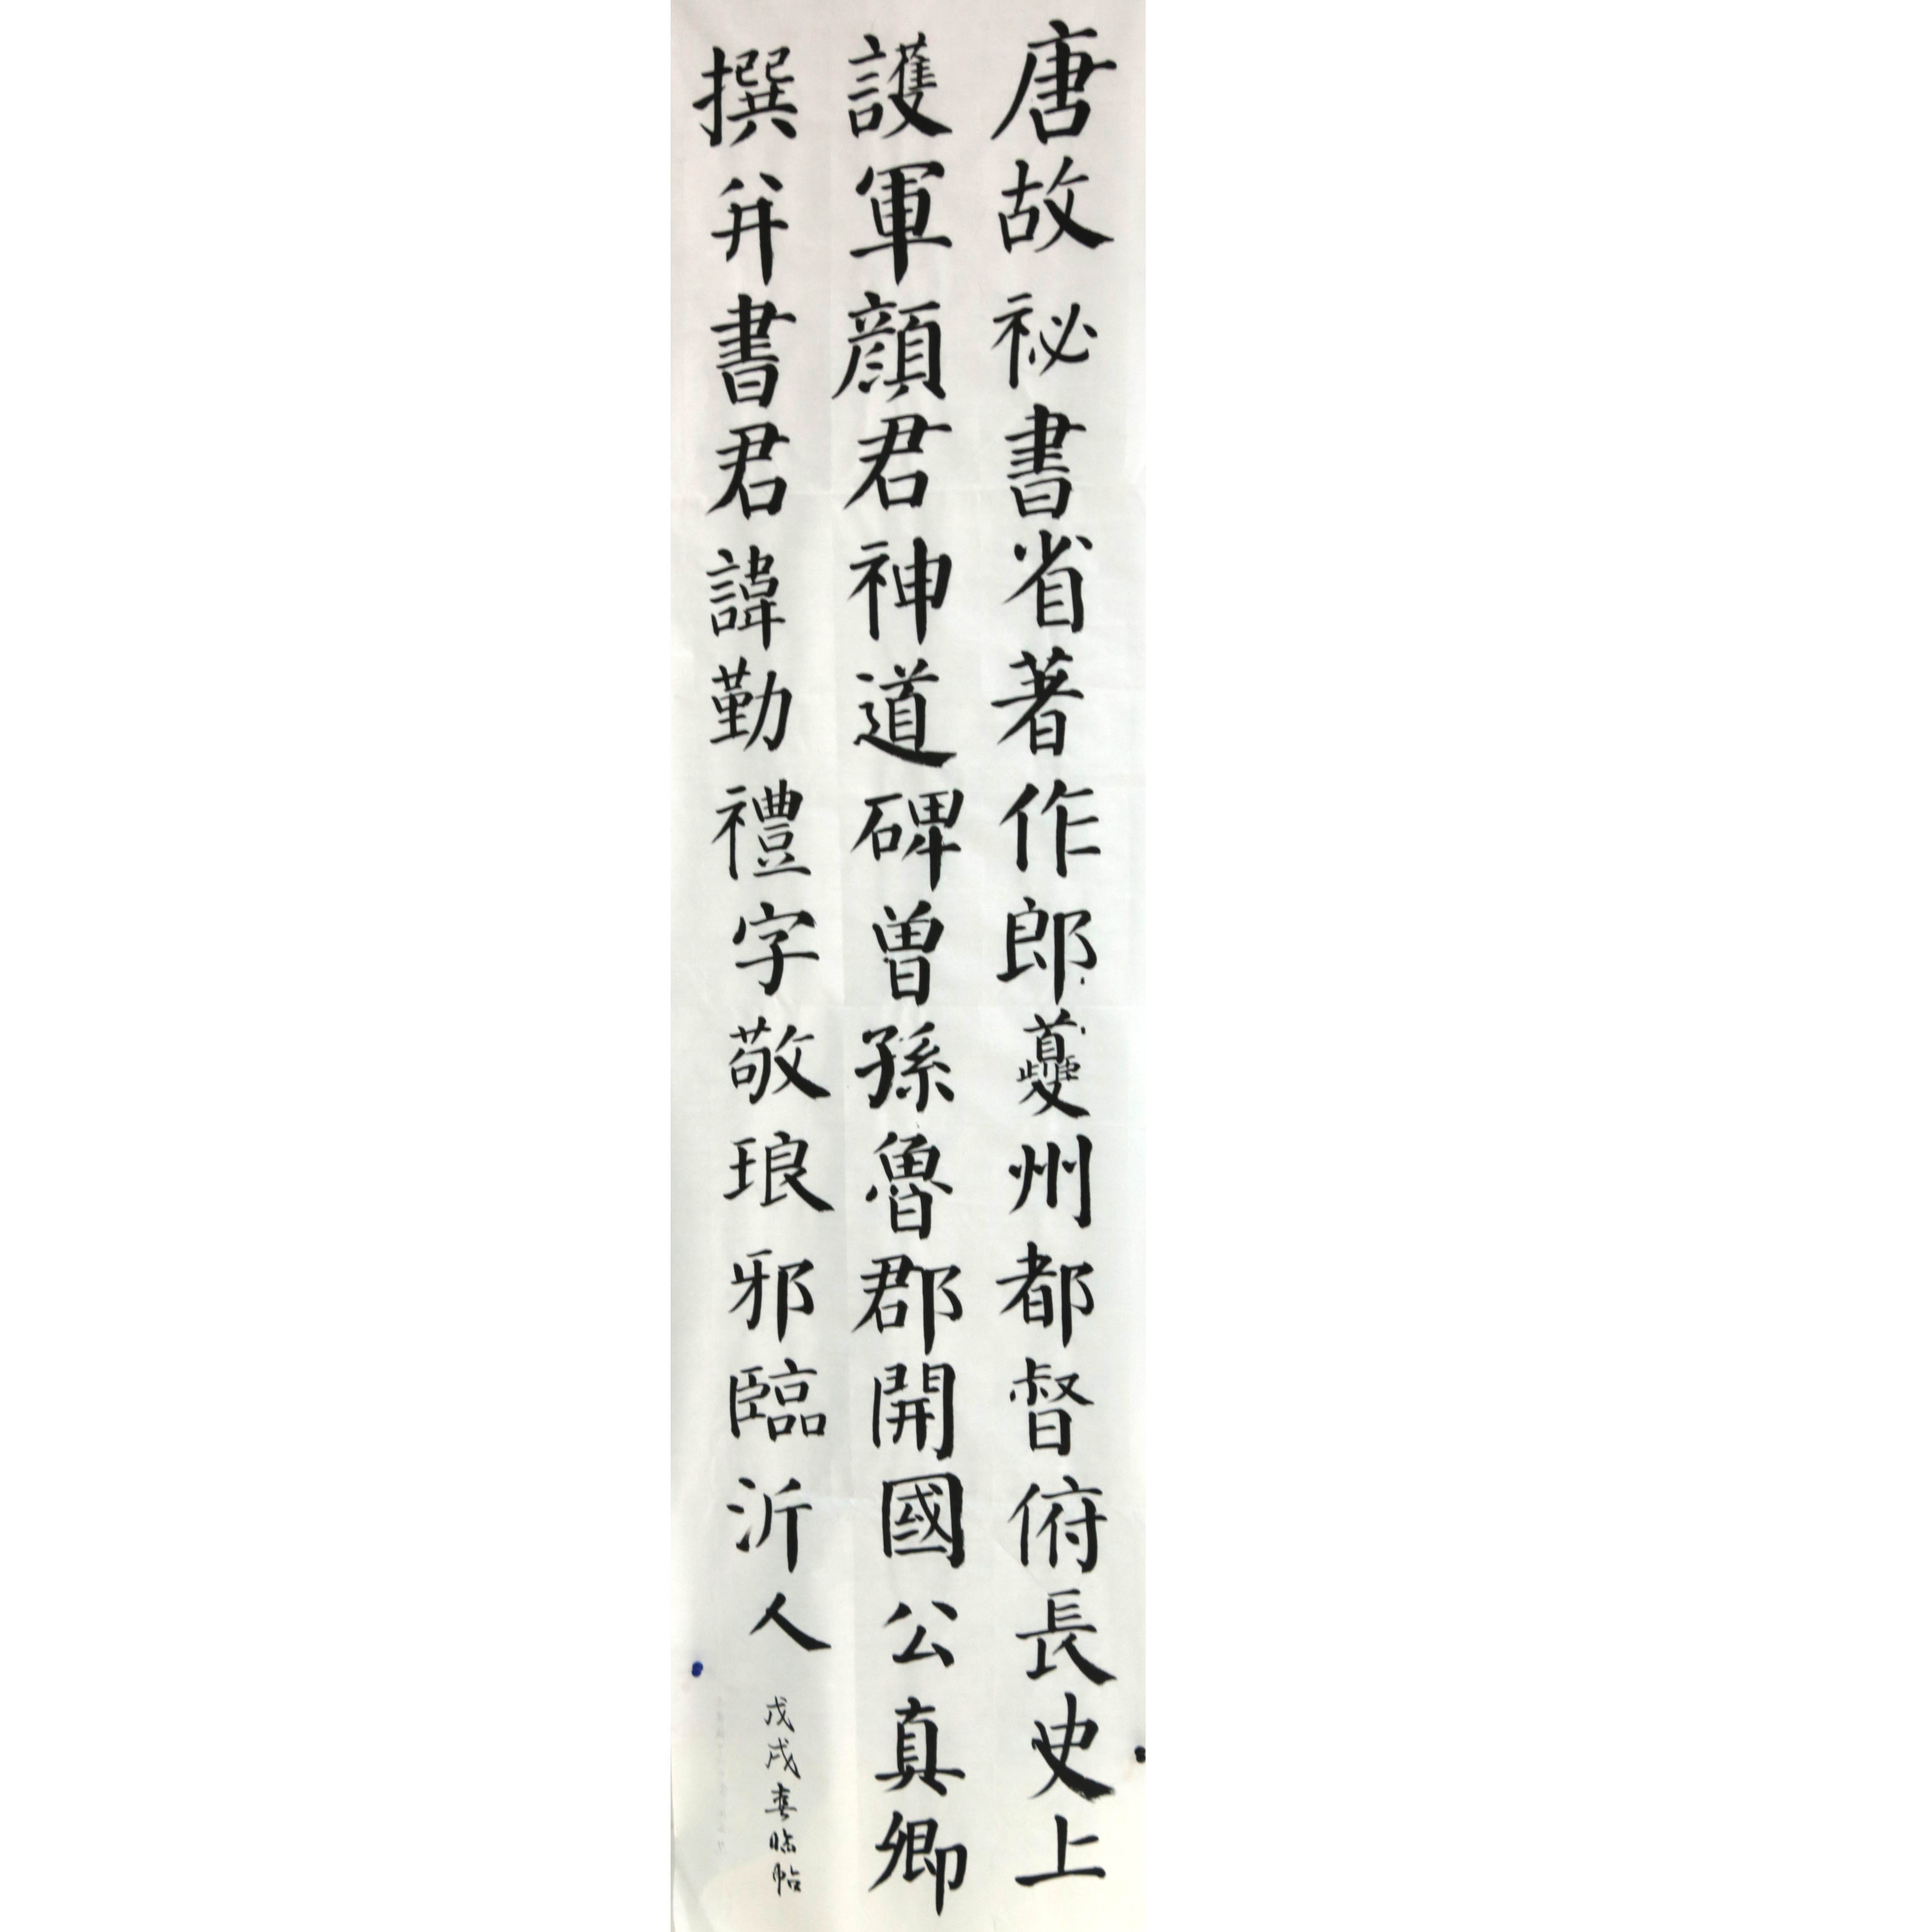 唐故祕書省著作郎夔州都督府長史上
護軍顏君神道碑曾孫魯郡開國公真卿
撰幷書君諱勤禮字敬琅邪臨沂人
戊戌春临帖